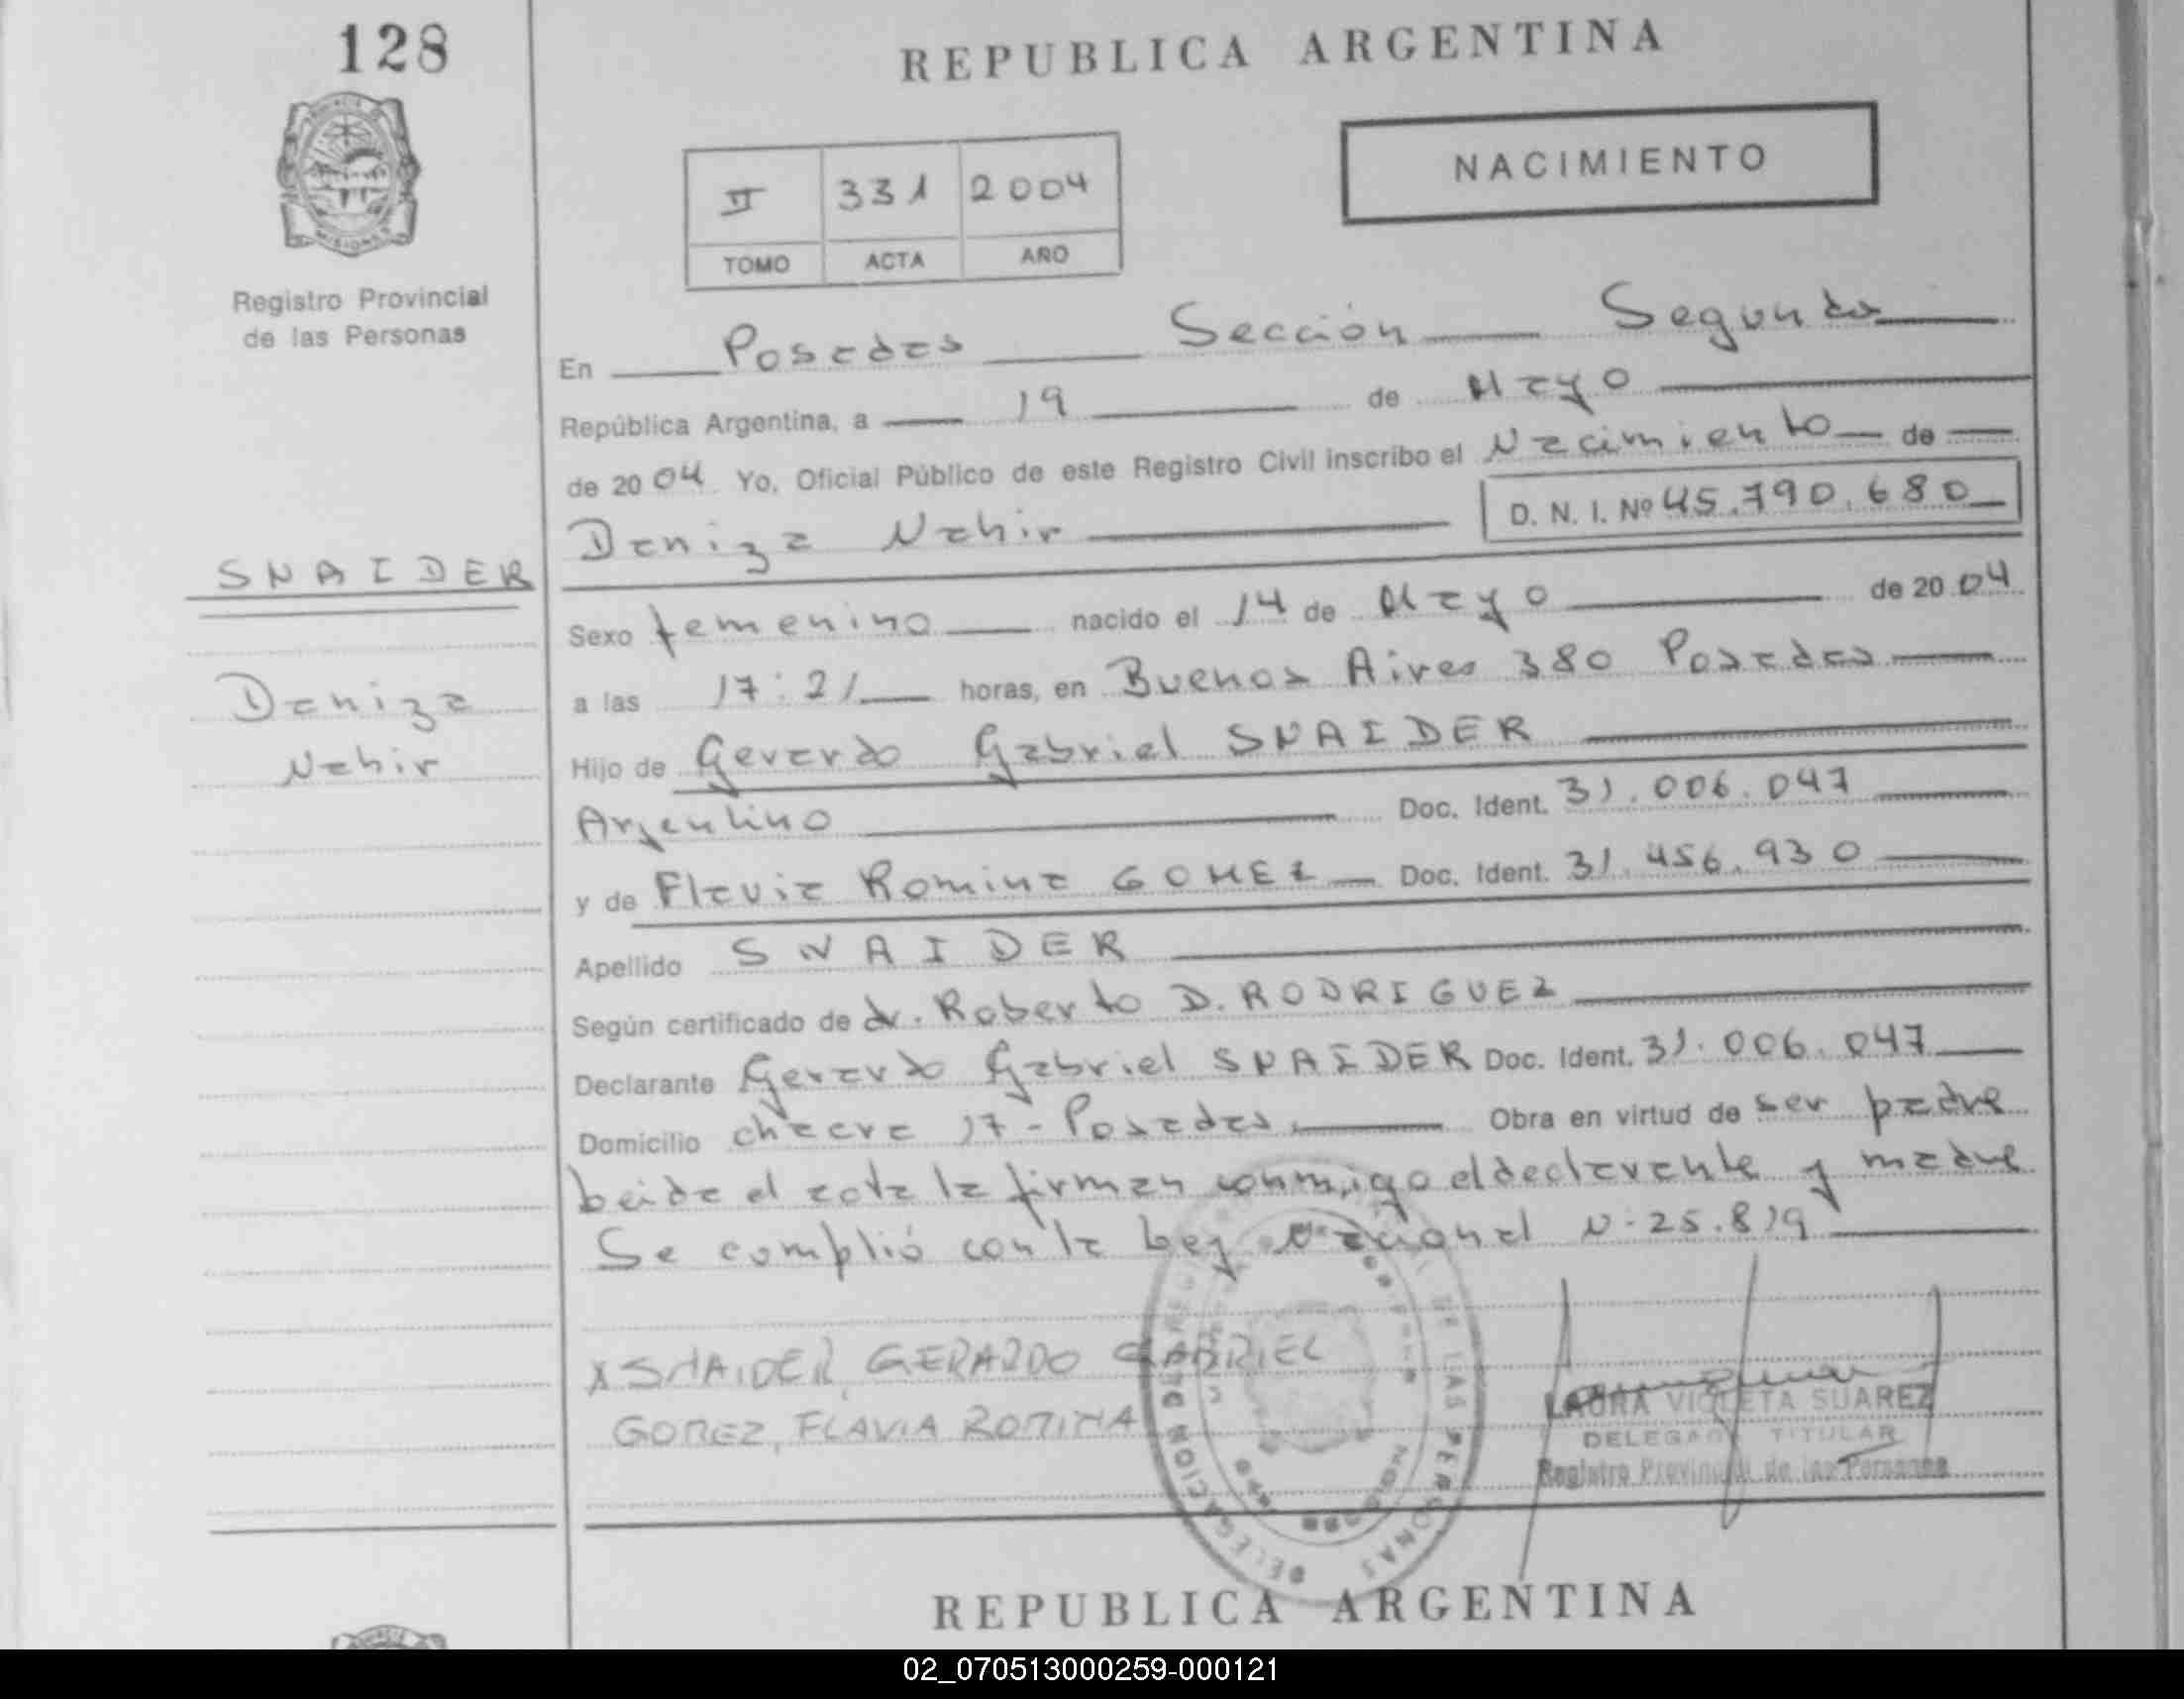 128
REPUBLICA ARGENTINA
NACIMIENTO
II 331 2004
TOMO ACTA AÑO
Registro Provincial
de las Personas
En Posadas Sección Segunda
República Argentina, a 19 de Mayo
de 2004 Yo, Oficial Público de este Registro Civil inscribo el Nacimiento de
Daniza Nahir D. N. I. Nº 45.790.680
SNAIDER
Daniza
Nahir
Sexo femenino nacido el 14 de Mayo de 2004
a las 17:21 horas, en Buenos Aires 380 Posadas
Hijo de Gerardo Gabriel SNAIDER
Argentino Doc. Ident. 31.006.047
y de Flavia Romina GOMEZ Doc. Ident. 31.456.930
Apellido SNAIDER
Según certificado de dr. Roberto D. RODRIGUEZ
Declarante Gerardo Gabriel SNAIDER Doc. Ident. 31.006.047
Domicilio chacra 17 - Posadas. Obra en virtud de ser padre
Leida el acta la firman conmigo el declarante y madre
Se cumplió con la Ley Nacional N. 25.819
X SNAIDER, GERARDO GABRIEL
GOMEZ, FLAVIA ROMINA
LAURA VIOLETA SUAREZ
DELEGADA TITULAR
Registro Provincial de las Personas
REPUBLICA ARGENTINA
02_070513000259-000121